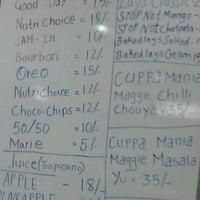 Good Day = 15/-
Nutri choice = 18/-
JAM-IN = 10/-
Bourbon = 12/-
Oreo = 15/-
Nutrichoice = 12/-
Choco-Chips = 12/-
50/50 = 10/-
Marie = 5/-
Juice (Tropicano)
APPLE - 18/-
PINEAPPLE
Lays Classic
STOP Not Mango -
STOP Not Chatpata
Baked lays Salted -
Baked lays Cream
CUPPA Mania
Maggie Chilli
Chouya - 35/-
CUPPA Mania
Maggie Masala
Yu = 35/-